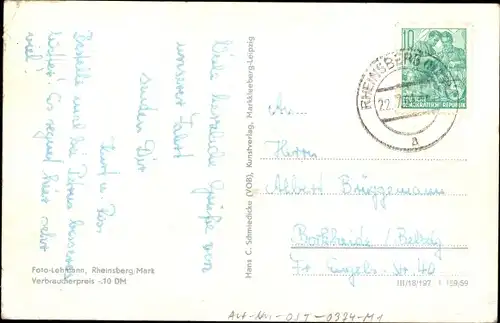 Viele herzliche Grüße von
unserer Fahrt
senden Dir
Kurt u.
Bestelle mal bei Petrus besseres
Wetter! Es regnet hier sehr
viel!
Foto-Lehmann, Rheinsberg/Mark
Verbraucherpreis -.10 DM
Hans C. Schmiedicke (VOB), Kunstverlag, Markkleeberg-Leipzig
10
DEUTSCHE
DEMOKRATISCHE REPUBLIK
RHEINSBERG
22.
a
An
Herrn
Albert Brüggemann
Borkheide / Belzig
Fr. Engels-Str. 40
III/18/197 1 159/59
Alt-Nr-OST-0374-M1